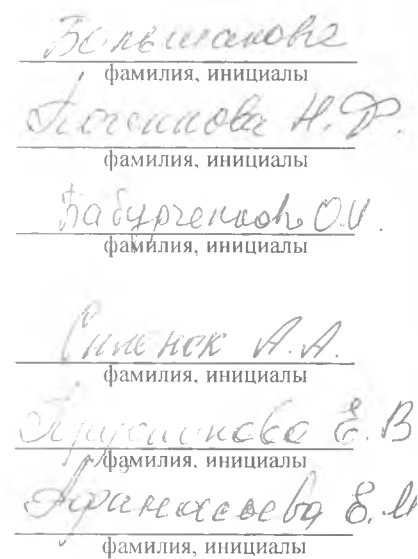 Большакова
фамилия, инициалы
Н.Ф.
фамилия, инициалы
Бабурченков О.И.
фамилия, инициалы
Силенок А.А.
фамилия, инициалы
Е.В
фамилия, инициалы
Афанасьева Е.М
фамилия, инициалы